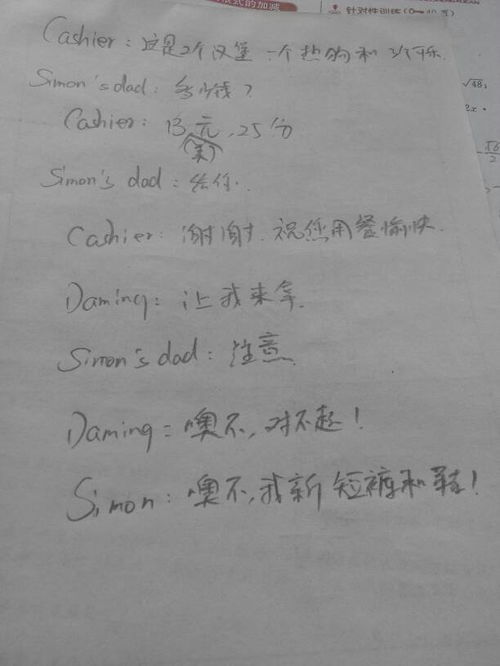 式的加减
针对性训练
√48,
√6
2
Cashier: 这是2个汉堡 一个热狗和 3可乐.
Simon's dad: 多少钱?
Cashier: 13元, 25分
(美)
Simon's dad: 给你.
Cashier: 谢谢. 祝您用餐愉快.
Daming: 让我来拿.
Simon's dad: 注意.
Daming: 噢不, 对不起!
Simon: 噢不, 我新短裤和鞋!